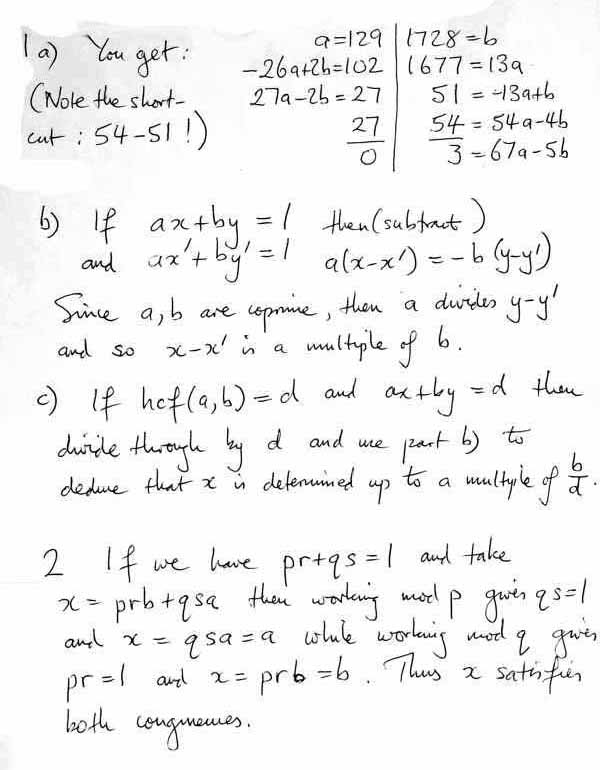 1a) You get: a=129 | 1728=b
-26a+2b=102 | 1677=13a
(Note the short- 27a-2b=27 | 51=-13a+b
cut: 54-51!) 27 | 54=54a-4b
0 | 3=67a-5b
b) If ax+by=1 then (subtract)
and ax'+by'=1 a(x-x')=-b(y-y')
Since a,b are coprime, then a divides y-y'
and so x-x' is a multiple of b.
c) If hcf(a,b)=d and ax+by=d then
divide through by d and use part b) to
deduce that x is determined up to a multiple of b/d.
2 If we have pr+qs=1 and take
x=prb+qsa then working mod p gives qs=1
and x=qsa=a while working mod q gives
pr=1 and x=prb=b. Thus x satisfies
both congruences.